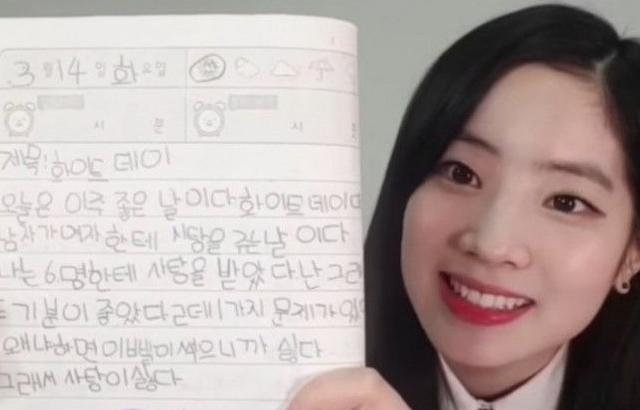 3월 14일 화요일
시 분 시
제목: 화이트 데이
오늘은 아주 좋은 날이다 화이트데이
남자가 여자 한테 사탕을 주는날 이다
나는 6명한테 사탕을 받았 다 난 그래
기분이 좋았다 근데 1가지 문제가
왜냐하면 이빨이 썩으니까 싫다
그래서 사탕이 싫다